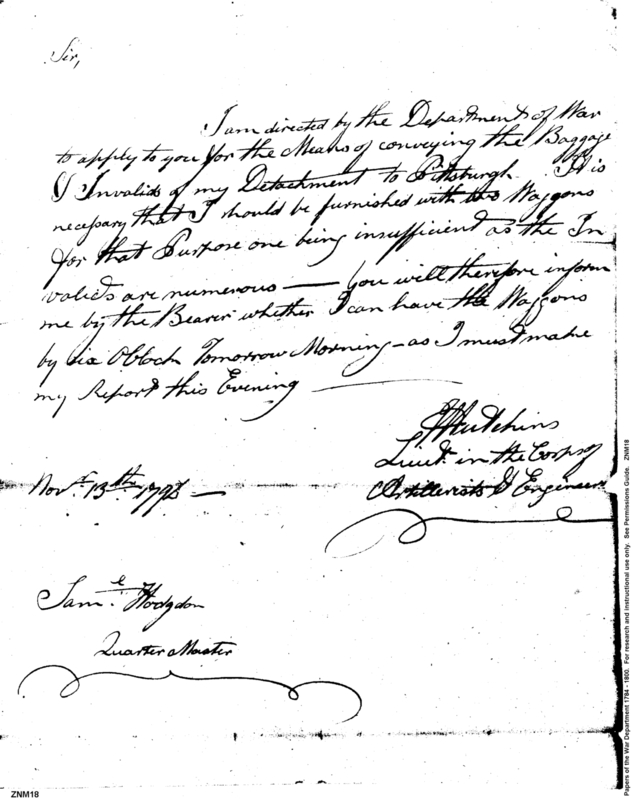 Sir,
I am directed by the Department of War
to apply to you for the Means of conveying the Baggage
& Invalids of my Detachment to Pittsburgh. It is
necessary that I should be furnished with two Waggons
for that Purpose one being insufficient as the In
valids are numerous — You will therefore inform
me by the Bearer whether I can have the Waggons
by six OClock Tomorrow Morning — as I must make
my Report this Evening —
Hutchins
Lieut. in the Corps of
Artillerists & Engineers
Novr. 13th
Saml. Hodgdon
Quarter Master
ZNM18
Papers of the War Department 1784 - 1800. For research and instructional use only. See Permissions Guide. ZNM18